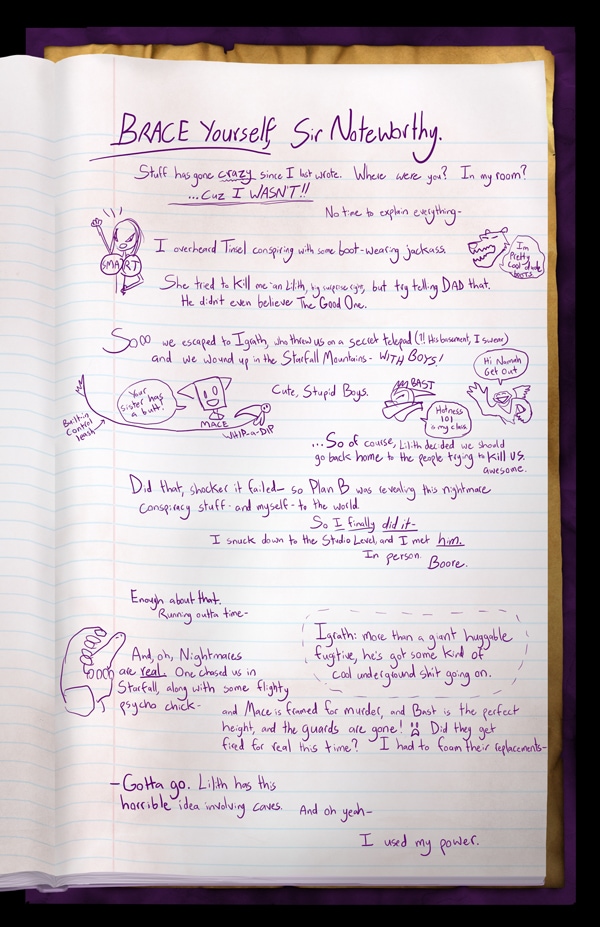 BRACE Yourself, Sir Noteworthy.
Stuff has gone crazy since I last wrote. Where were you? In my room?
...Cuz I WASN'T!!
No time to explain everything-
SMART
I overheard Tinsel conspiring with some boot-wearing jackass.
I'm Pretty
Cool-dude
boots
She tried to kill me an Lilith, by surprise orgy, but try telling DAD that.
He didn't even believe The Good One.
Sooo we escaped to Igrath, who threw us on a secret telepad (?! His basement, I swear)
and we wound up in the Starfall Mountains- WITH BOYS!
Built-in
Control
leash
Your
Sister has
a butt!
MACE
WHIP-a-DIP
Cute, Stupid Boys.
BAST
Hotness
101
is my class
Hi Namah
Get Out
...So of course, Lilith decided we should
go back home to the people trying to kill us.
awesome.
Did that, shocker it failed- so Plan B was revealing this nightmare
conspiracy stuff- and myself- to the world.
So I finally did it-
I snuck down to the Studio Level, and I met him.
In person.
Boore.
Enough about that.
Running outta time-
Igrath: more than a giant huggable
fugitive, he's got some kind of
cool underground shit going on.
And, oh, Nightmares
are real. One chased us in
Starfall, along with some flighty
psycho chick-
and Mace is framed for murder, and Bast is the perfect
height, and the guards are gone! Did they get
fired for real this time? I had to foam their replacements-
-Gotta go. Lilith has this
horrible idea involving caves. And oh yeah-
I used my power.